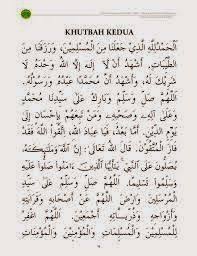 KHUTBAH KEDUA
الْحَمْدُ لِلَّهِ الَّذِيْ جَعَلَنَا مِنَ الْمُسْلِمِيْنَ، وَرَزَقَنَا مِنَ
الطَّيِّبَاتِ، أَشْهَدُ أَنْ لَا إِلٰهَ إِلَّا اللهُ وَحْدَهُ لَا
شَرِيْكَ لَهُ، وَأَشْهَدُ أَنَّ مُحَمَّدًا عَبْدُهُ وَرَسُوْلُهُ.
اَللّٰهُمَّ صَلِّ وَسَلِّمْ وَبَارِكْ عَلَى سَيِّدِنَا مُحَمَّدٍ
وَعَلَى آلِهِ وَأَصْحَابِهِ وَمَنْ تَبِعَهُمْ بِإِحْسَانٍ إِلَى
يَوْمِ الدِّيْنِ. أَمَّا بَعْدُ، فَيَا عِبَادَ اللهِ، اتَّقُوا اللهَ فَقَدْ
فَازَ الْمُتَّقُوْنَ. قَالَ اللهُ تَعَالَى: إِنَّ اللهَ وَمَلَائِكَتَهُ
يُصَلُّونَ عَلَى النَّبِيِّ، يَا أَيُّهَا الَّذِينَ آمَنُوا صَلُّوا عَلَيْهِ
وَسَلِّمُوا تَسْلِيمًا. اَللّٰهُمَّ صَلِّ وَسَلِّمْ عَلَى سَيِّدِ
الْمُرْسَلِيْنَ وَارْضَ اللّٰهُمَّ عَنْ أَصْحَابِهِ وَقَرَابَتِهِ
وَأَزْوَاجِهِ وَذُرِّيَّاتِهِ أَجْمَعِيْنَ. اَللّٰهُمَّ اغْفِرْ
لِلْمُسْلِمِيْنَ وَالْمُسْلِمَاتِ وَالْمُؤْمِنِيْنَ وَالْمُؤْمِنَاتِ